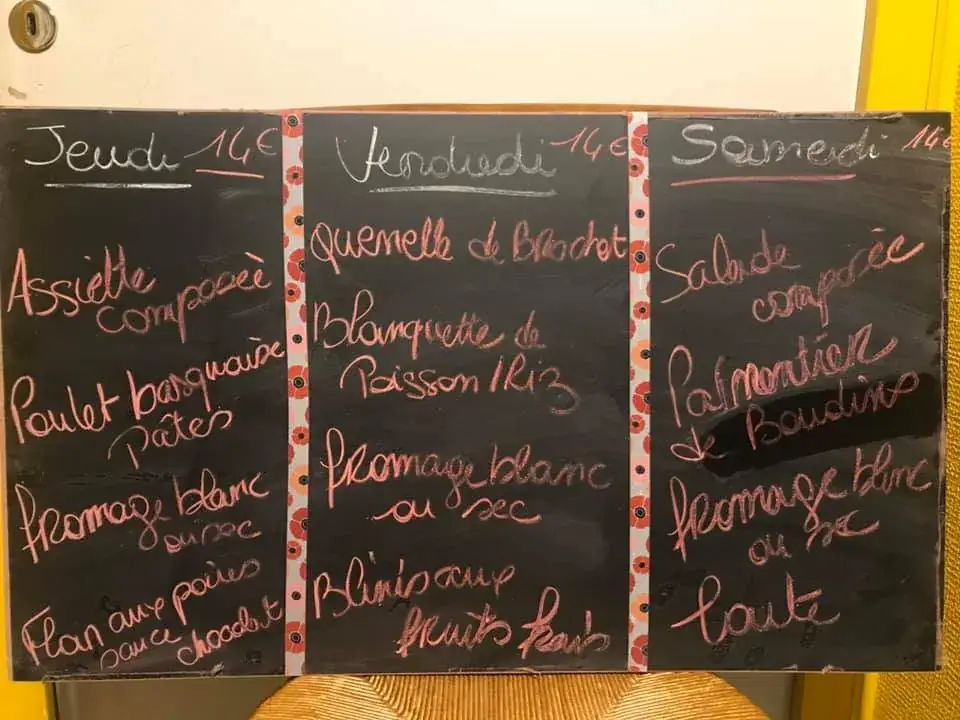 Jeudi 14€
Assiette
composée
Poulet basquaise
Pâtes
fromage blanc
ou sec
Flan aux poires
sauce chocolat
Vendredi 14€
Quenelle de Brochet
Blanquette de
Poisson / Riz
fromage blanc
ou sec
Blinis aux
fruits frais
Samedi 14€
Salade
composée
Parmentier
de Boudins
fromage blanc
ou sec